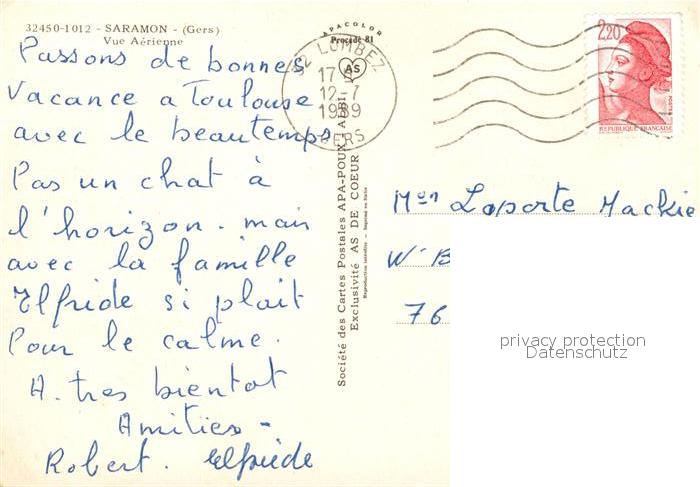 32450-1012 - SARAMON - (Gers)
Vue Aérienne
Passons de bonnes
Vacance a Toulouse
avec le beautemps
Pas un chat à
l'horizon. mais
avec la famille
Elfride si plait
Pour le calme.
A. tres bientot
Amities -
Robert. Elfriede
APACOLOR
Procédé 81
AS
32 LOMBEZ
17
12-7
1989
GERS
Société des Cartes Postales APA-POUX - ALBI
Exclusivité AS DE COEUR
Reproduction interdite - Imprimé en Suisse
2,20
REPUBLIQUE FRANÇAISE
Mon Laporte Mackie
W-B
76
privacy protection
Datenschutz